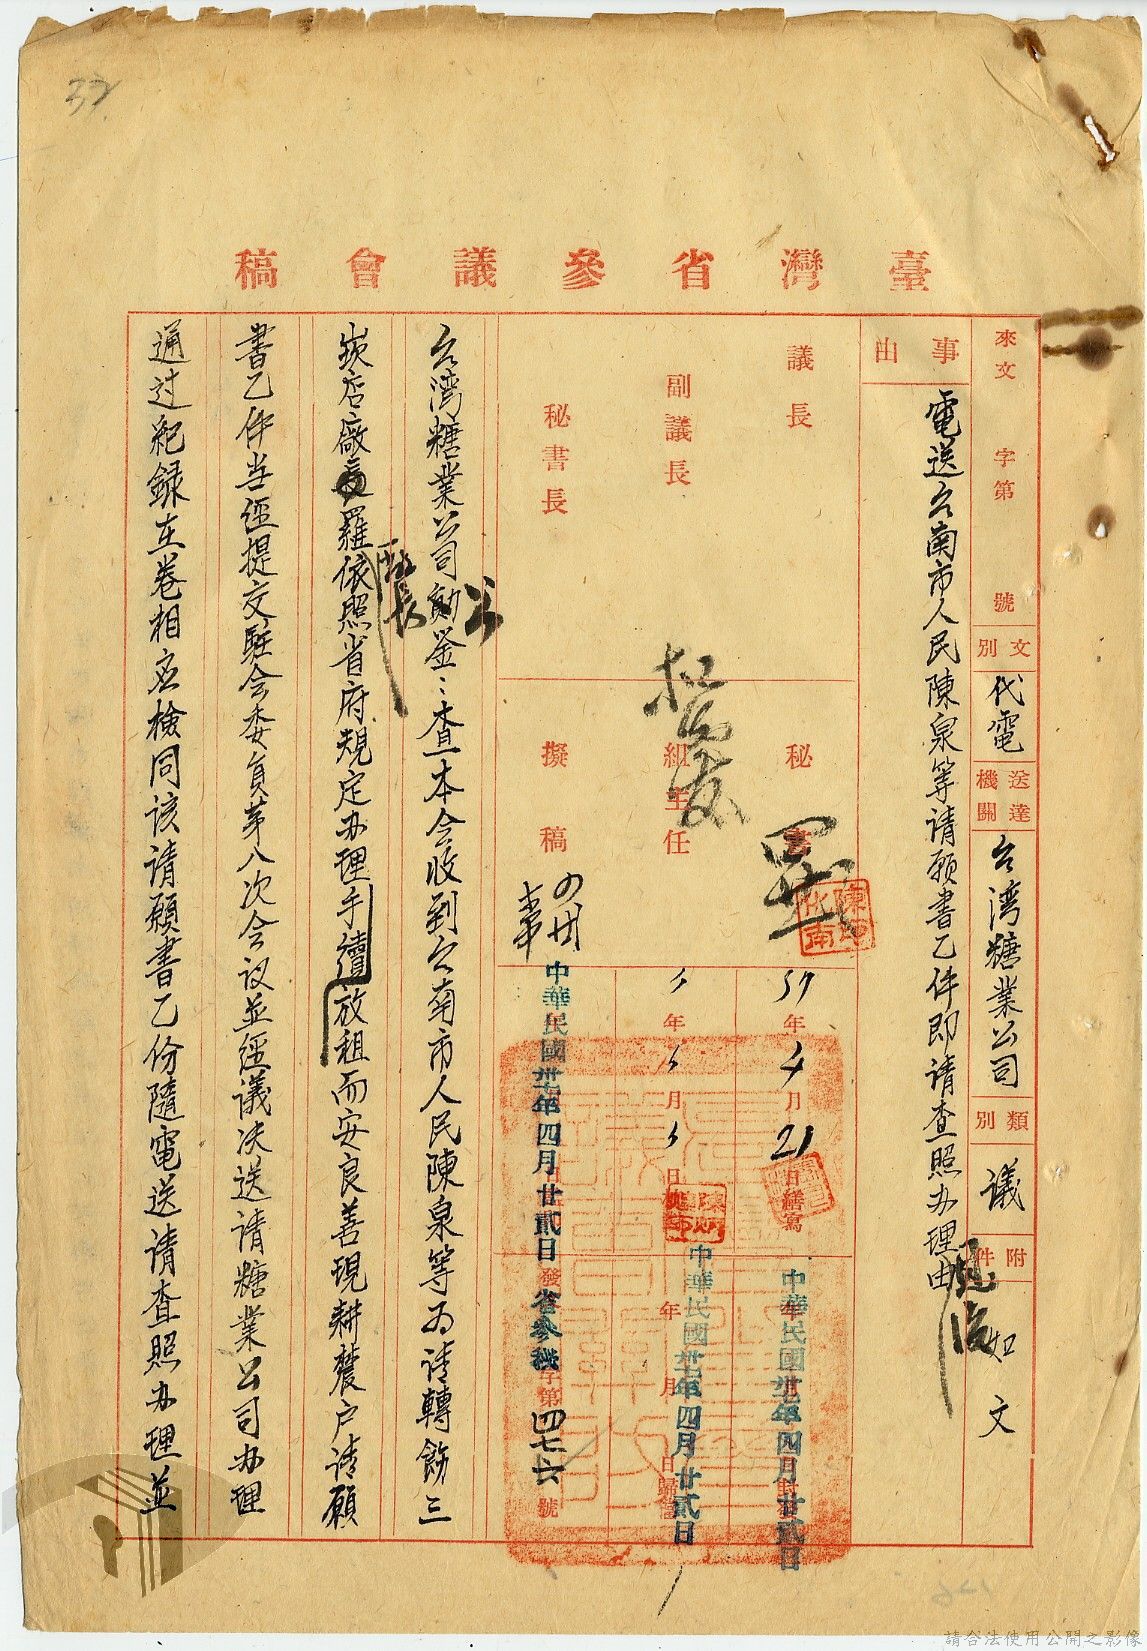 37
臺灣省參議會稿
來文 字第 號
文別 代電
送達機關 台湾糖業公司
類別 議
附件 如文
事由
電送台南市人民陳泉等请願書乙件即请查照办理由
議長
副議長
秘書長
秘書
組主任
擬稿
陳印化南
37年4月21日繕寫
年 月 日
中華民國卅七年四月廿貳日封發
中華民國卅七年四月廿貳日歸檔
中華民國卅七年四月廿貳日
發省参秘字第四七六號
台湾糖業公司勛鉴：查本会收到台南市人民陳泉等为请轉飭三
崁店廠長羅依照省府規定办理手續放租而安良善現耕農户请願
書乙件当經提交駐会委員第八次会议並經議决送请糖業公司办理
通过紀録在卷相应檢同该请願書乙份隨電送请查照办理並
請合法使用公開之影像